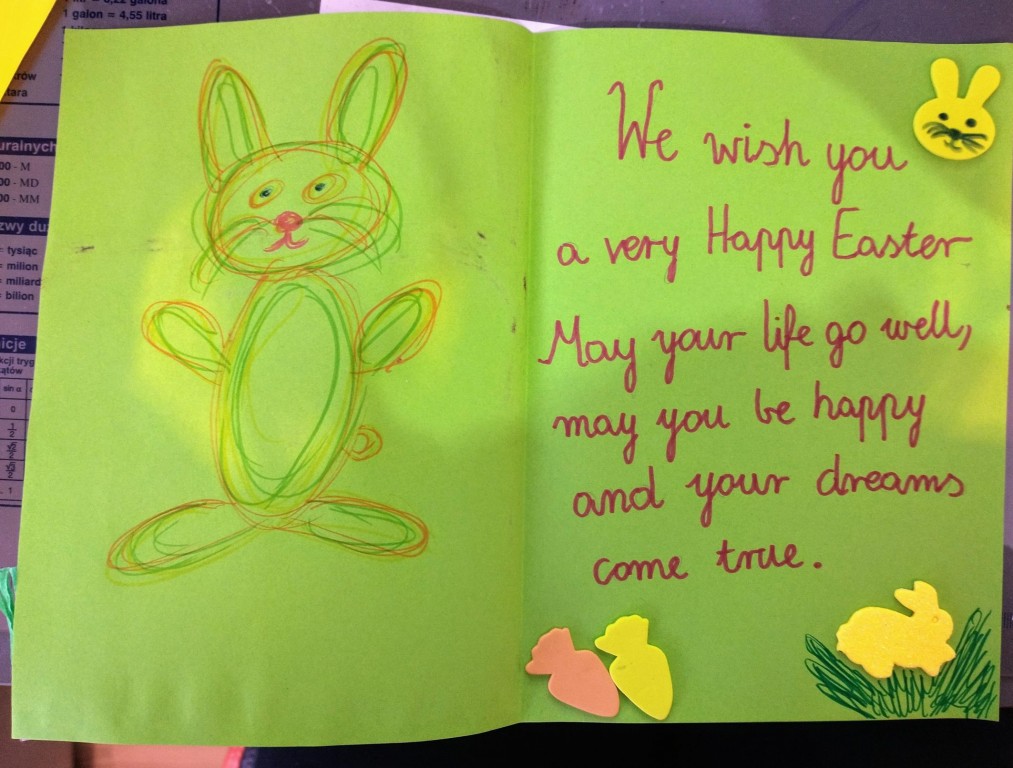 1 galon = 4,55 litra
tara
00 - M
00 - MD
00 - MM
= tysiąc
= milion
= miliard
= bilion
sin α
0
1
We wish you
a very Happy Easter
May your life go well,
may you be happy
and your dreams
come true.